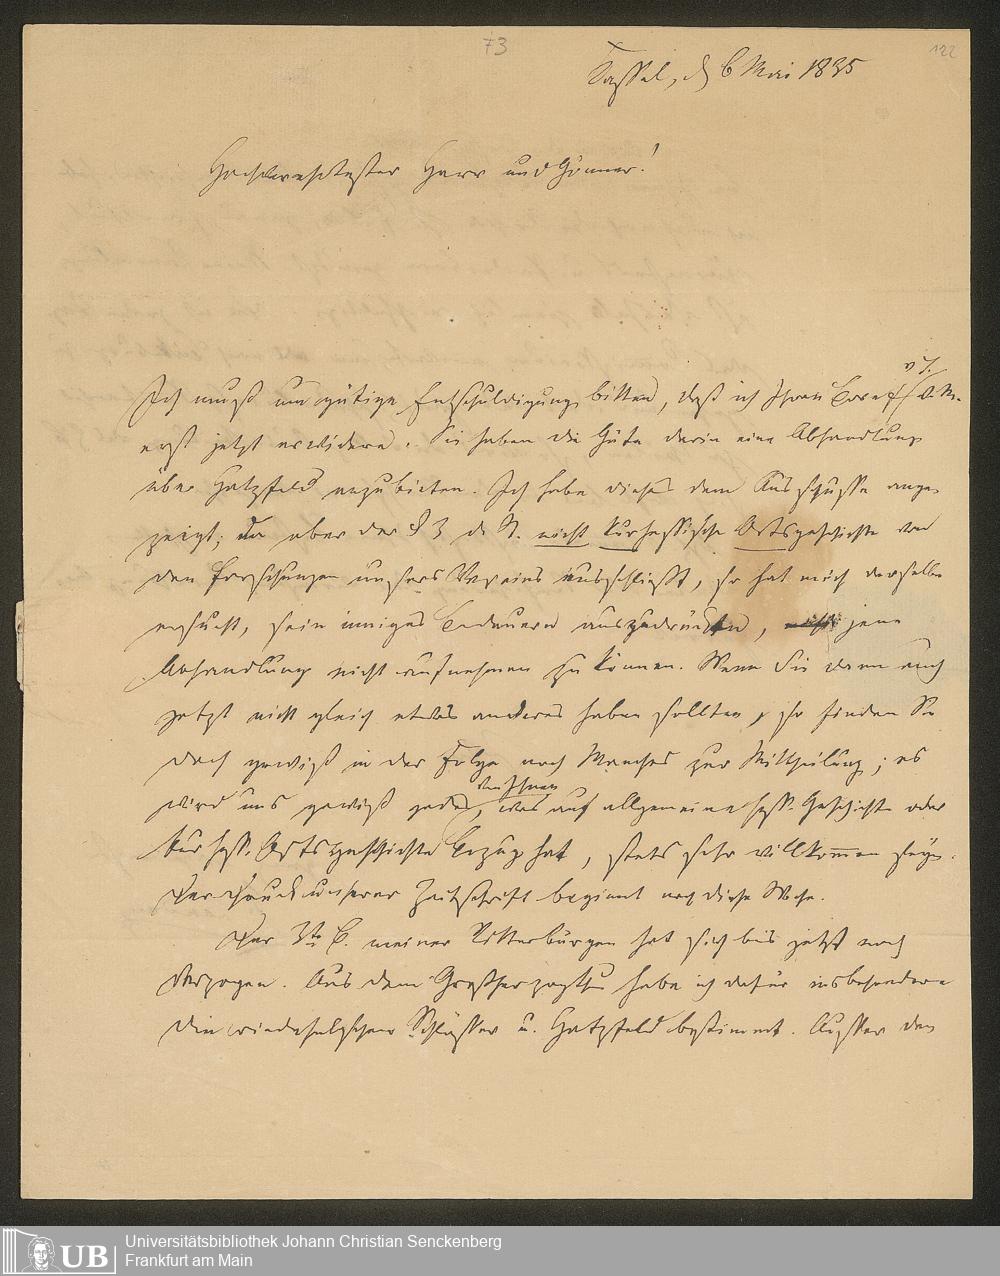 73
122
Kassel, d 6 Mai 1835
Hochverehrtester Herr und Gönner!
v. 7.
Ich muß um gütige Entschuldigung bitten, daß ich Ihren Brief d. M.
erst jetzt erwidere. Sie haben die Güte darin eine Abhandlung
über Hatzfeld anzubieten. Ich habe dieses dem Ausschusse ange-
zeigt; da aber der § 3 d. St. nicht kurhessische Ortsgeschichte von
den Forschungen unsers Vereins ausschließt, so hat mich derselbe
ersucht, sein inniges Bedauern auszudrücken, jene
Abhandlung nicht aufnehmen zu können. Wenn Sie denn auch
jetzt nicht gleich etwas anderes haben sollten, so finden Sie
doch gewiß in der Folge noch Manches zur Mittheilung; es
von Ihnen
wird uns gewiß jedes, was auf allgemeine hess. Geschichte oder
kurhess. Ortsgeschichte Bezug hat, stets sehr willkommen seyn.
Der Druck unserer Zeitschrift beginnt noch diese Woche.
Der 3te B. meiner Ritterburgen hat sich bis jetzt noch
verzogen. Aus dem Großherzogthu habe ich dafür insbesondere
die riedeselschen Schlösser u. Hatzfeld bestimmt. Ausser den
Universitätsbibliothek Johann Christian Senckenberg
UB
Frankfurt am Main